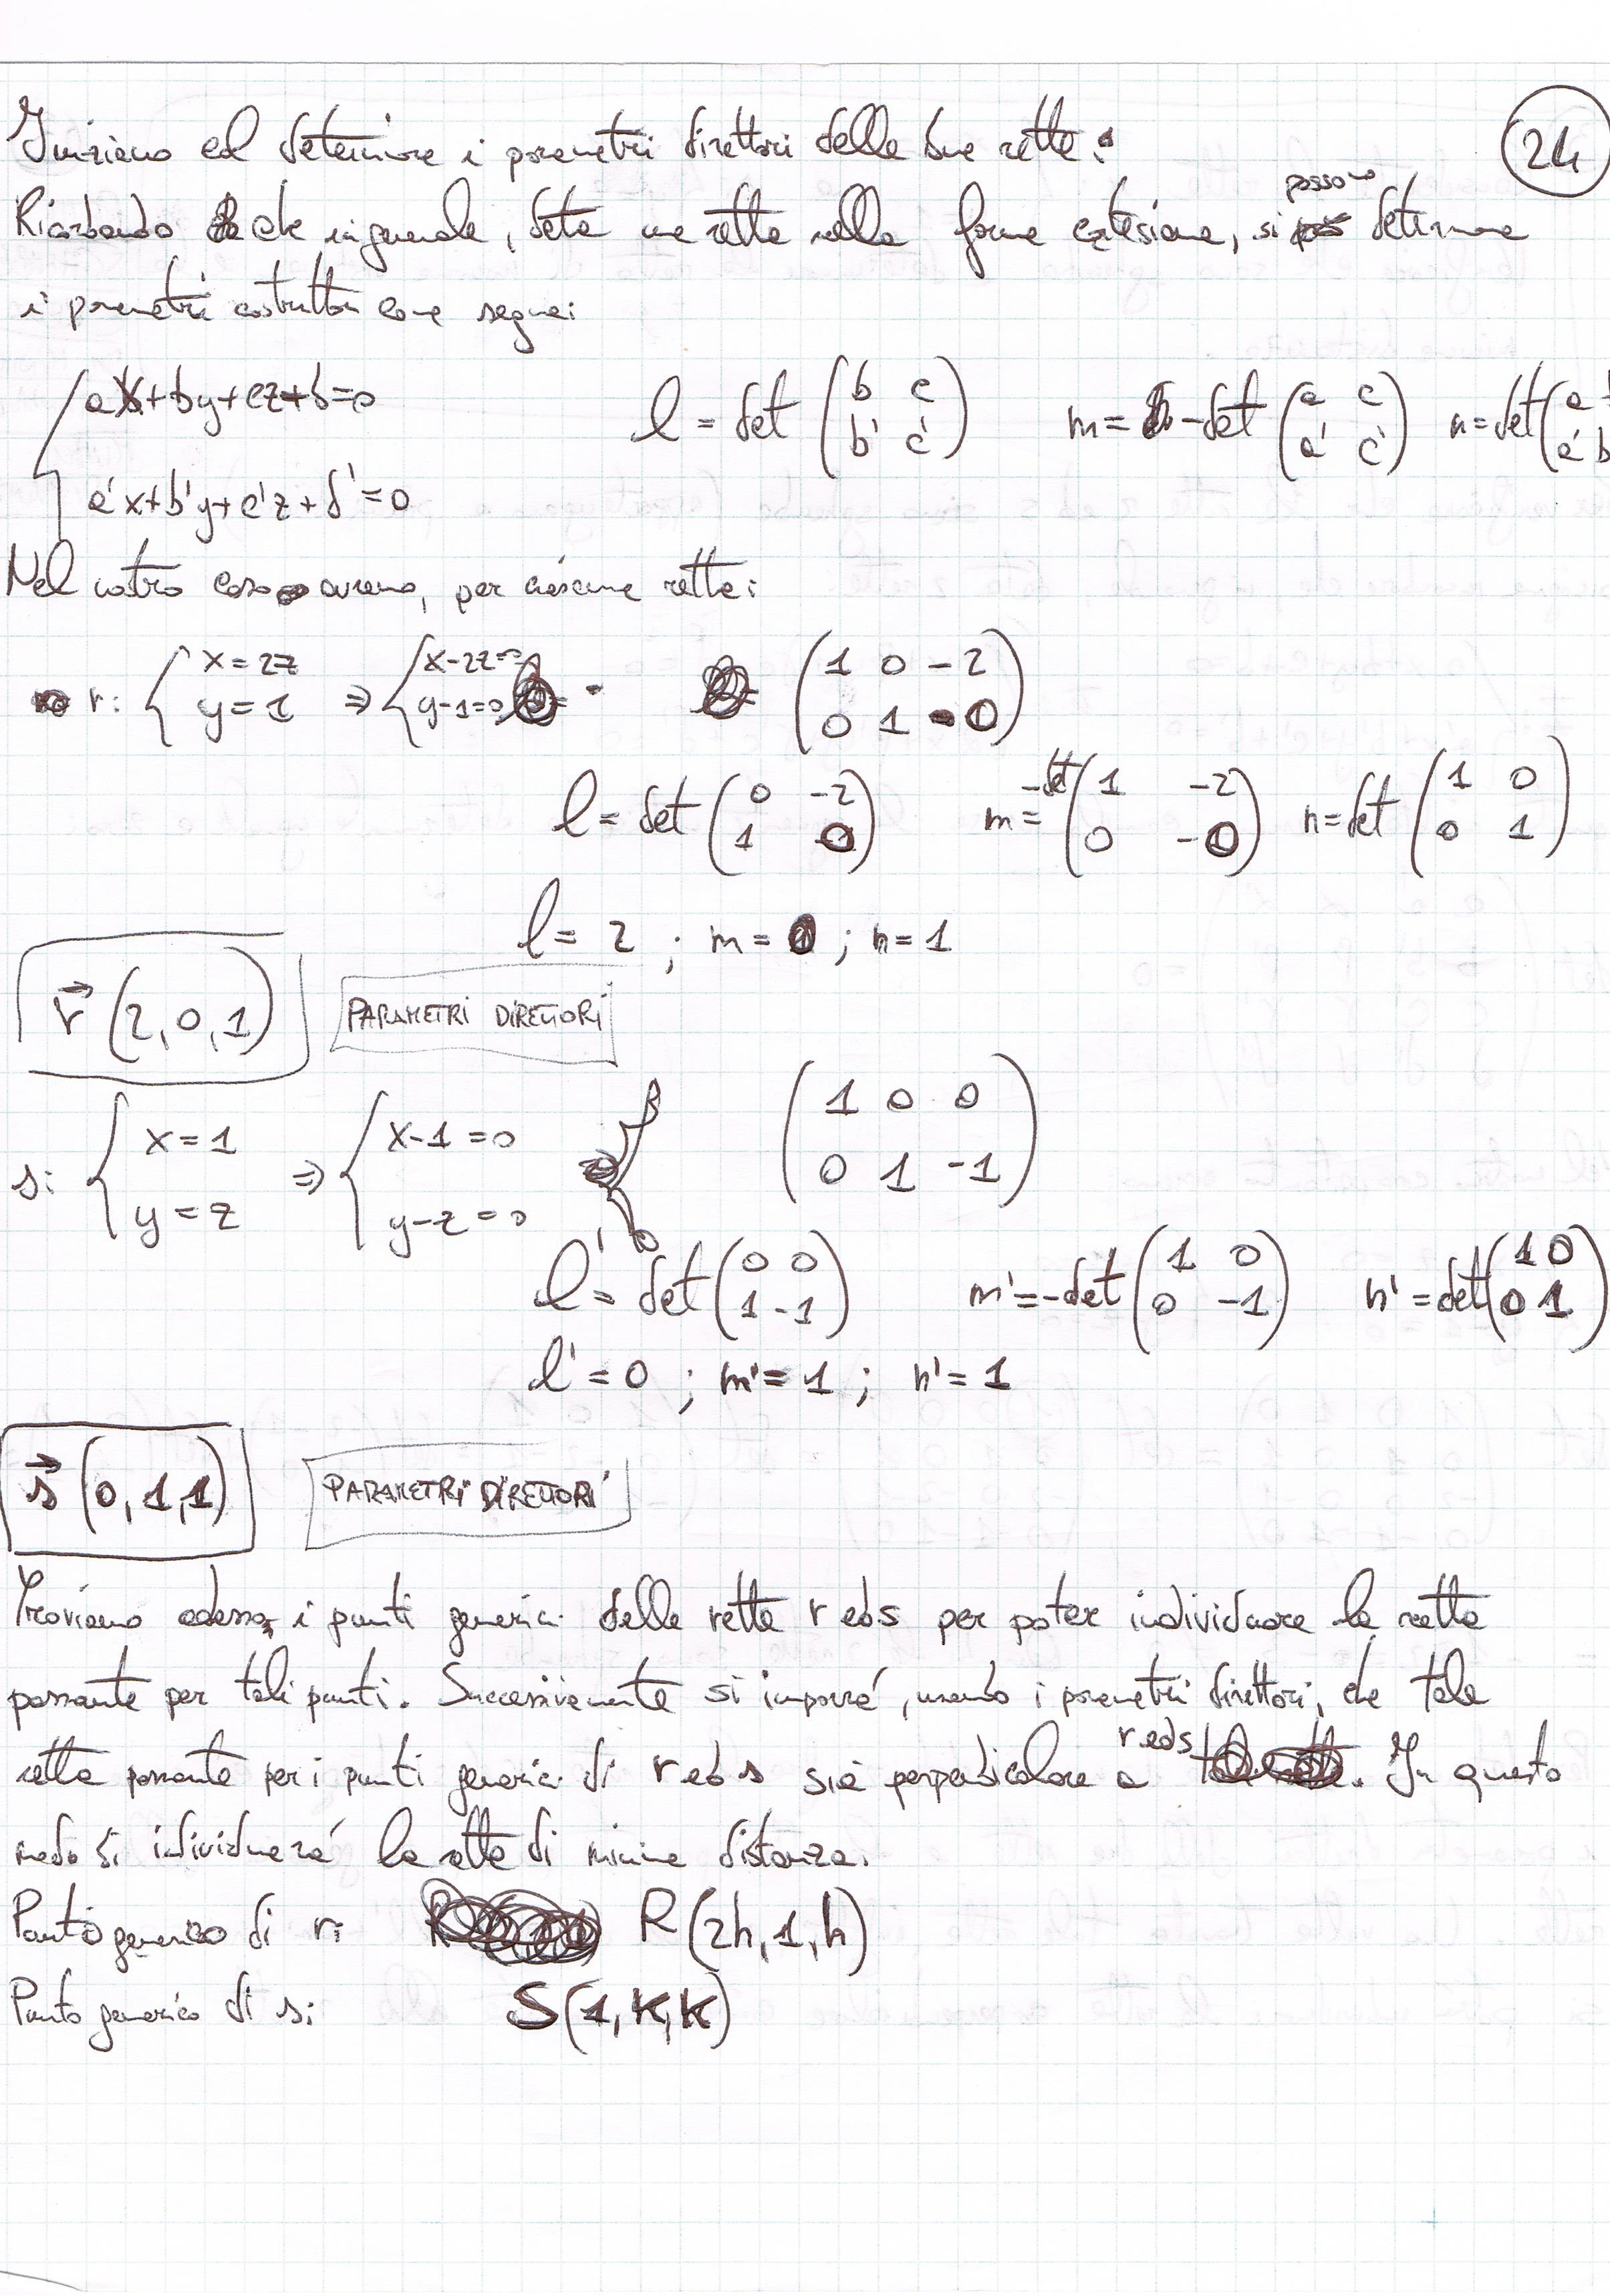 Iniziamo col determinare i parametri direttori delle due rette:
24
Ricordando che in generale, data una retta nella forma cartesiana, si possono determinare
i parametri costruttori come segue:
{ ax+by+cz+d=0
a'x+b'y+c'z+d'=0
l = det (b c / b' c') m = -det (a c / a' c') n = det (a / a' b
Nel nostro caso avremo, per ciascuna retta:
r: { x=2z / y=1 ⇒ { x-2z=0 / y-1=0 (1 0 -2 / 0 1 0)
l = det (0 -2 / 1 0) m = -det (1 -2 / 0 -0) n = det (1 0 / 0 1)
l = 2 ; m = 0 ; n = 1
r⃗ (2,0,1) PARAMETRI DIRETTORI
s: { x=1 / y=z ⇒ { x-1=0 / y-z=0 (1 0 0 / 0 1 -1)
l' = det (0 0 / 1 -1) m' = -det (1 0 / 0 -1) n' = det (1 0 / 0 1)
l' = 0 ; m' = 1 ; n' = 1
s⃗ (0,1,1) PARAMETRI DIRETTORI
Troviamo adesso, i punti generici delle rette r ed s per poter individuare la retta
passante per tali punti. Successivamente si imporrá, usando i parametri direttori, che tale
retta passante per i punti generici di r ed s sia perpendicolare a r ed s. In questo
modo si individuerá la retta di minima distanza.
Punto generico di r: R(2h,1,h)
Punto generico di s: S(1,k,k)